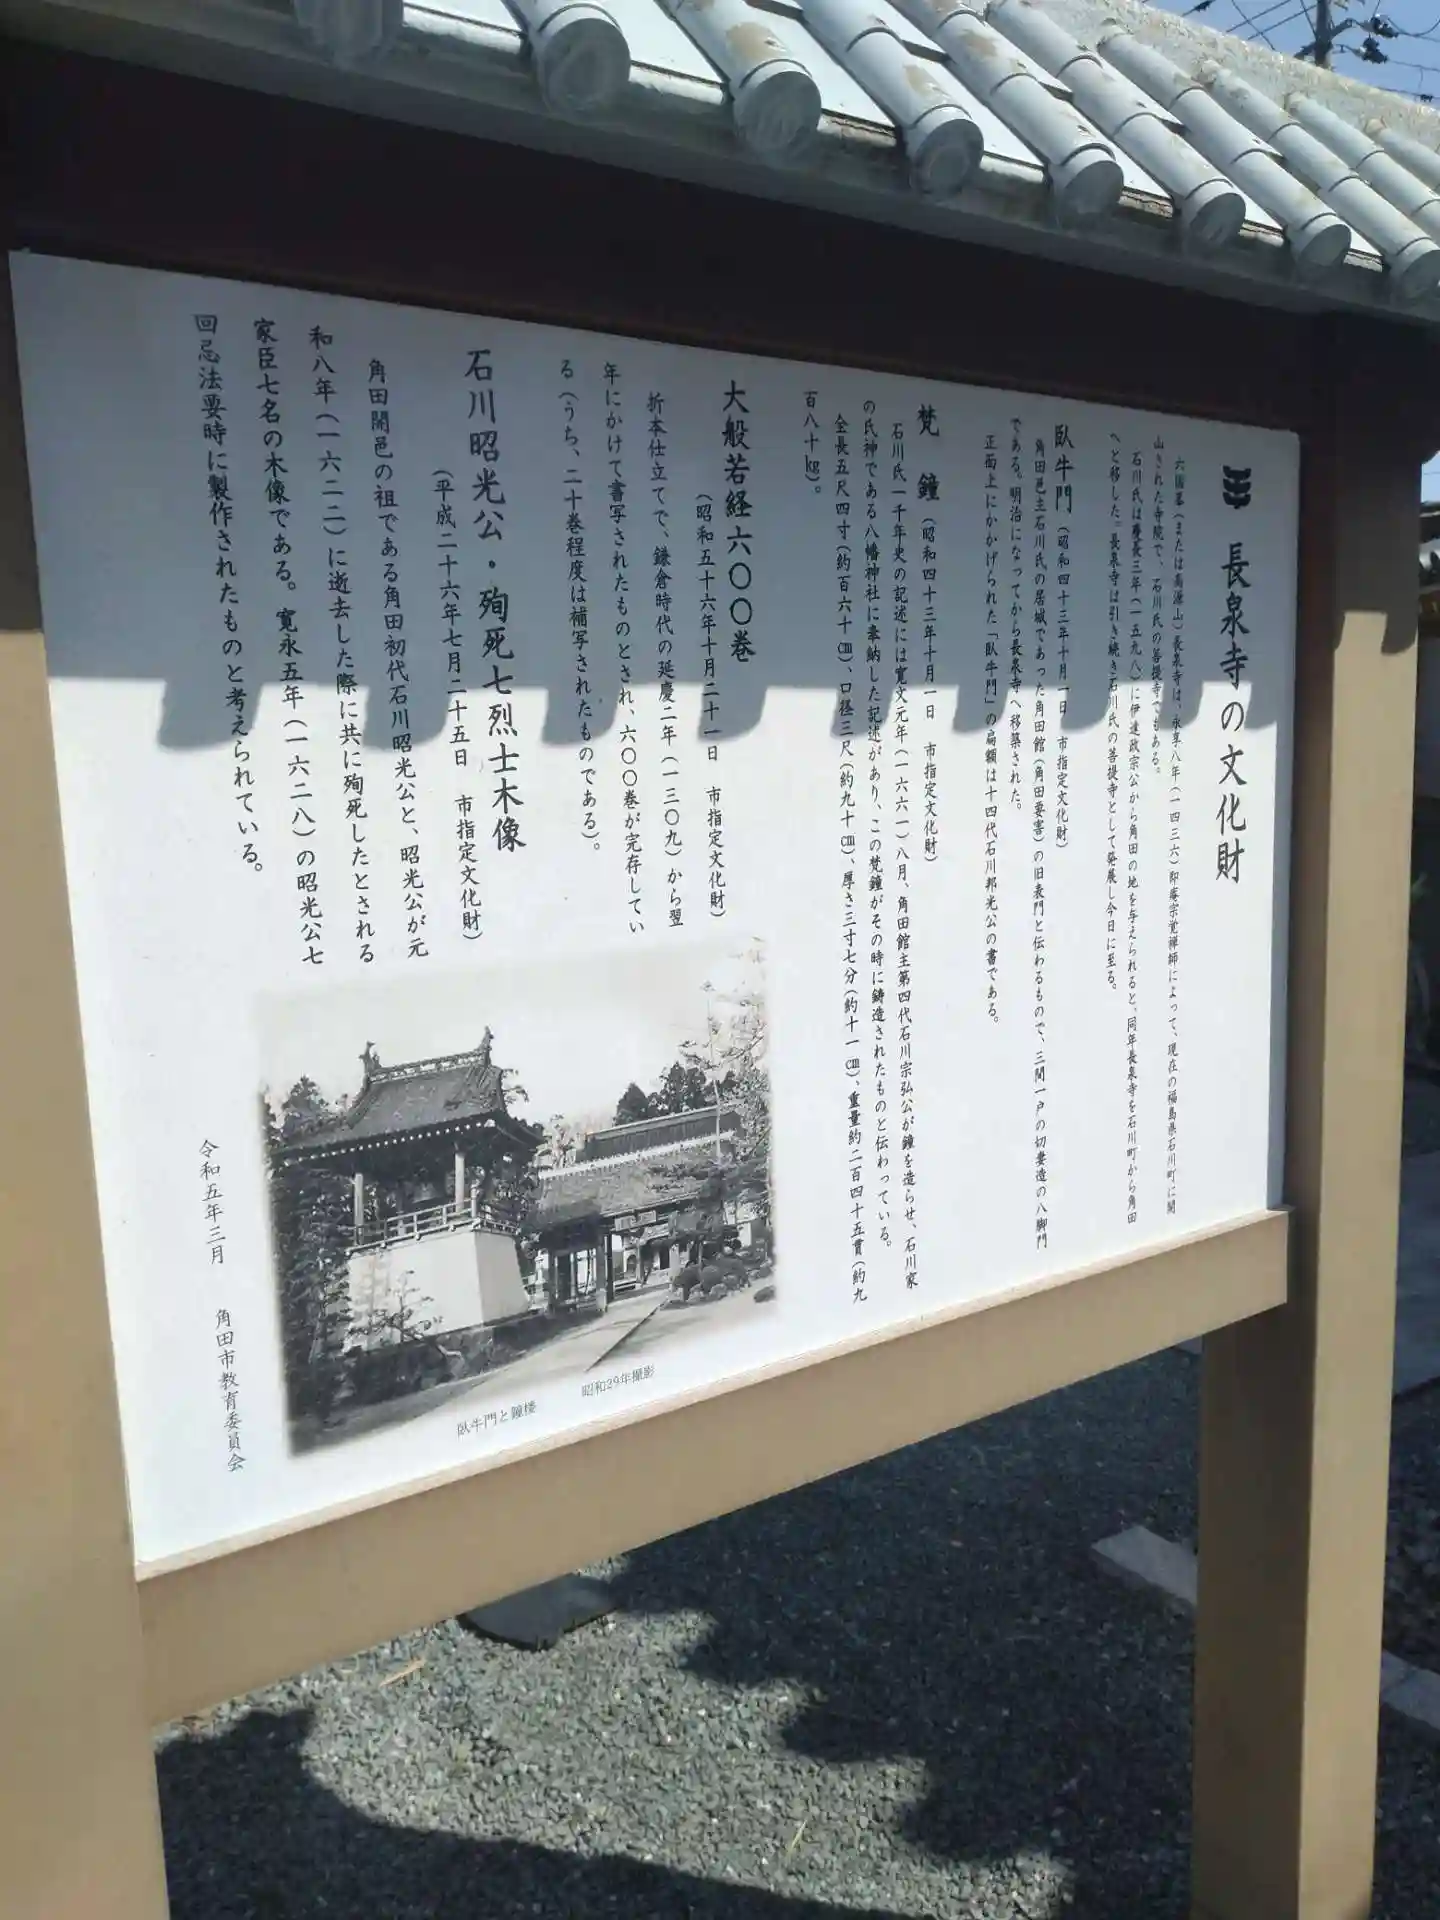 長泉寺の文化財
六国峯(または高源山)長泉寺は、永享八年(一四三六)即庵宗覚禅師によって、現在の福島県石川町に開
山された寺院で、石川氏の菩提寺でもある。
石川氏は慶長三年(一五九八)に伊達政宗公から角田の地を与えられると、同年長泉寺を石川町から角田
へと移した。長泉寺は引き続き石川氏の菩提寺として発展し今日に至る。
臥牛門(昭和四十三年十月一日 市指定文化財)
角田邑主石川氏の居城であった角田館(角田要害)の旧表門と伝わるもので、三間一戸の切妻造の八脚門
である。明治になってから長泉寺へ移築された。
正面上にかかげられた「臥牛門」の扁額は十四代石川邦光公の書である。
梵 鐘(昭和四十三年十月一日 市指定文化財)
石川氏一千年史の記述には寛文元年(一六六一)八月、角田館主第四代石川宗弘公が鐘を造らせ、石川家
の氏神である八幡神社に奉納した記述があり、この梵鐘がその時に鋳造されたものと伝わっている。
全長五尺四寸(約百六十㎝)、口径三尺(約九十㎝)、厚さ三寸七分(約十一㎝)、重量約二百四十五貫(約九
百八十㎏)。
大般若経六〇〇巻
(昭和五十六年十月二十一日 市指定文化財)
折本仕立てで、鎌倉時代の延慶二年(一三〇九)から翌
年にかけて書写されたものとされ、六〇〇巻が完存してい
る(うち、二十巻程度は補写されたものである)。
石川昭光公・殉死七烈士木像
(平成二十六年七月二十五日 市指定文化財)
角田開邑の祖である角田初代石川昭光公と、昭光公が元
和八年(一六二二)に逝去した際に共に殉死したとされる
家臣七名の木像である。寛永五年(一六二八)の昭光公七
回忌法要時に製作されたものと考えられている。
臥牛門と鐘楼 昭和39年撮影
令和五年三月 角田市教育委員会